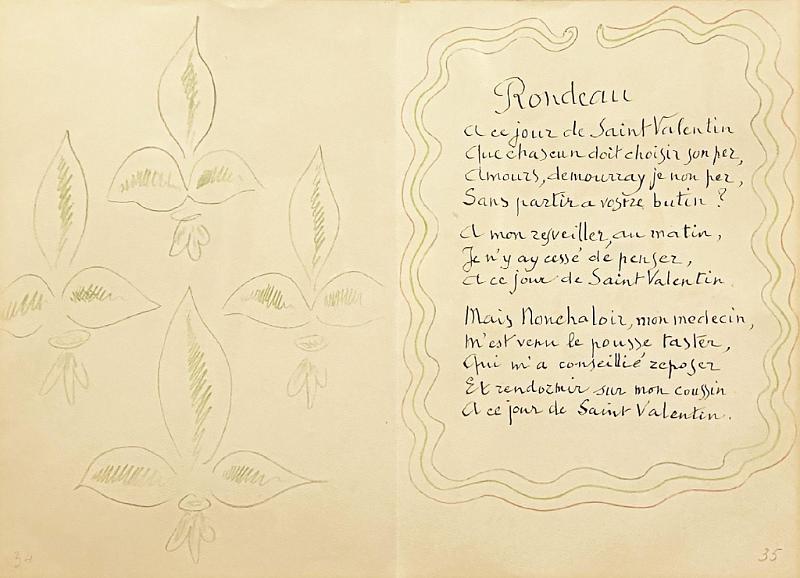 Rondeau
A ce jour de Saint Valentin
Que chascun doit choisir son per,
Amours, demourray je non per,
Sans partir a vostre butin ?
A mon resveiller, au matin,
Je n'y ay cessé de penser,
A ce jour de Saint Valentin
Mais Nonchaloir, mon medecin,
M'est venu le pousse taster,
Qui m'a conseillié reposer
Et rendormir sur mon coussin
A ce jour de Saint Valentin.
34
35